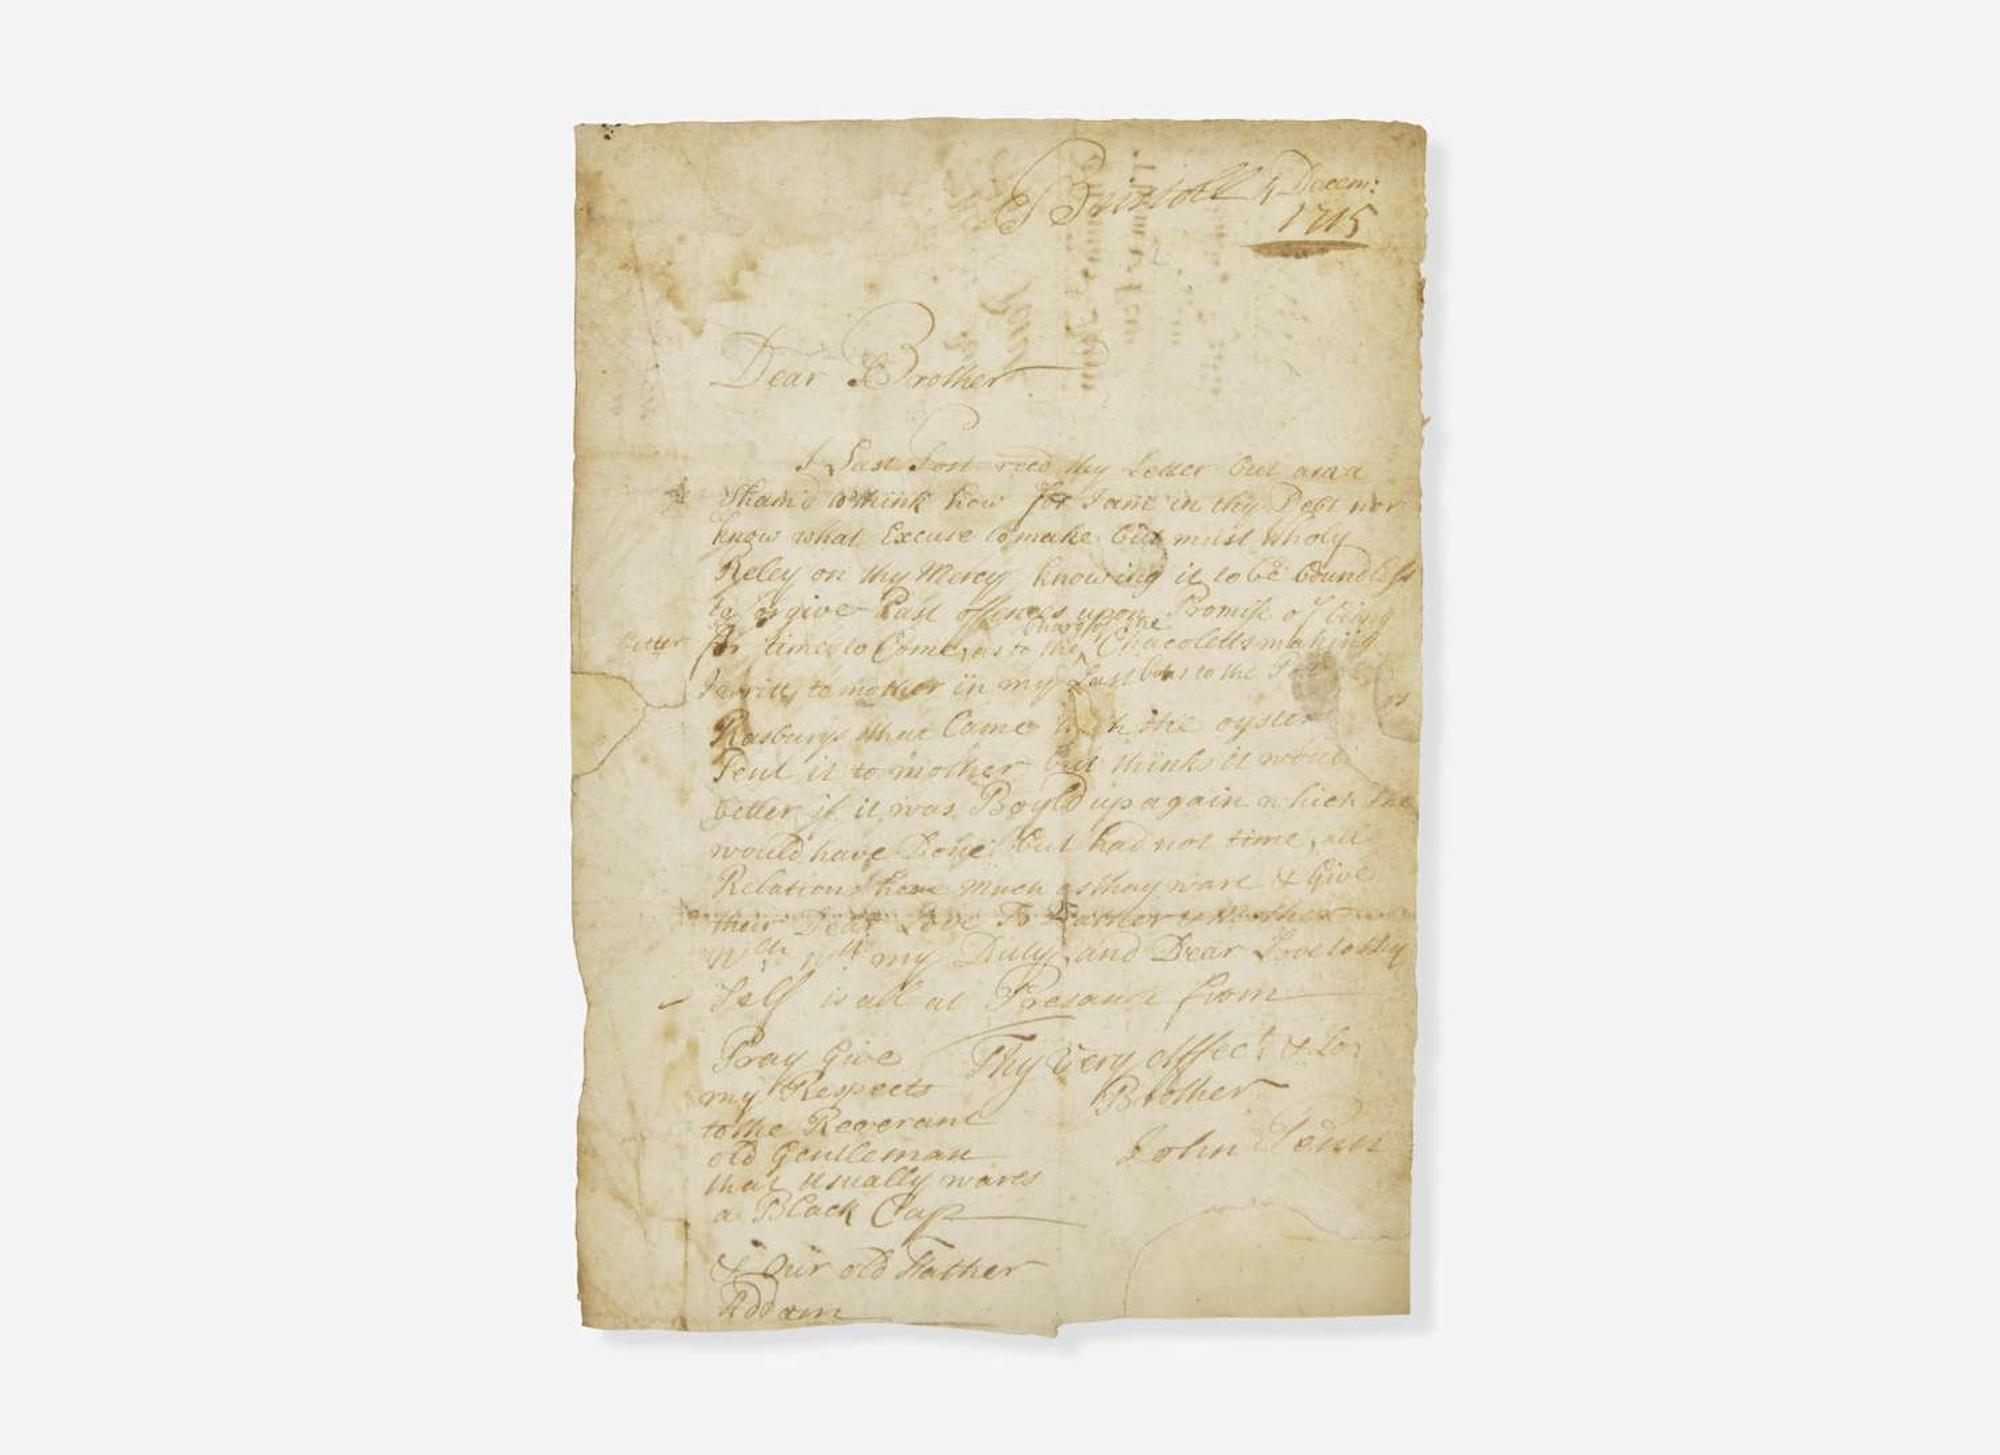 Bristoll 4 Decem:
1715
Dear Brother
I Last Post reed thy Letter but am a
Sham'd to think how far I am in thy Debt nor
know what Excuse to make but must wholy
Reley on thy Mercy knowing it to be boundless
to forgive Past offences upon Promise of being
better for time to Come, as to the charge of the Chacoletts making
I writt to mother in my Last but as to the
Rasburys that Came with the oyster
Sent it to mother but thinks it would
better if it was Boyld up again which she
would have Done but had not time, all
Relations have much as thay ware & Give
their Dear Love To Father & Mother
wch wth my Duty, and Dear Love to thy
Self is all at Presant from
Thy Very Affect &
Brother
John Penn
Pray Give
my Respects
to the Reverant
old Gentleman
that usually wares
a Black Cap
& Our old Father
Addam